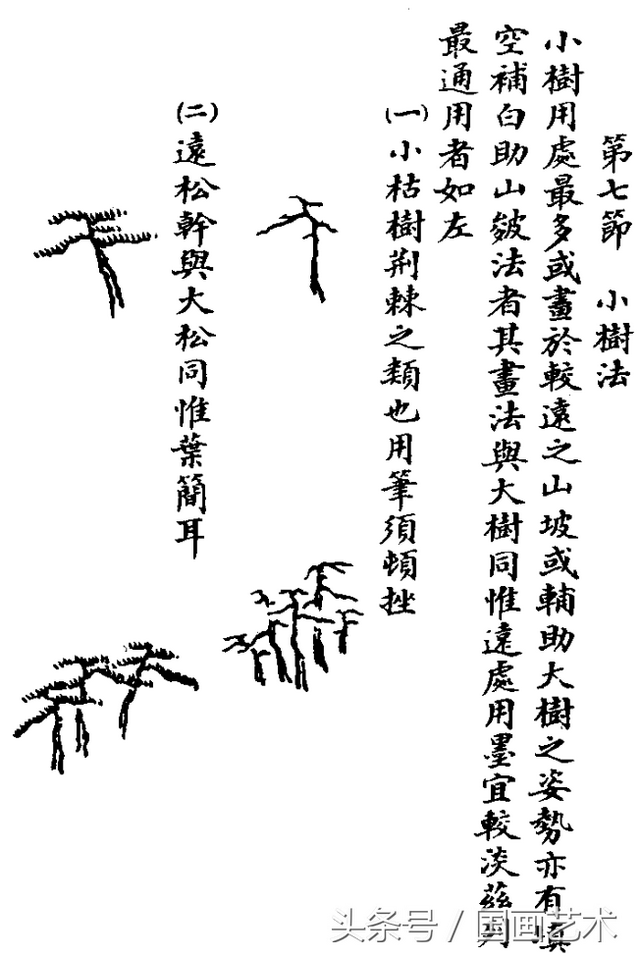 第七節　小樹法
小樹用處最多或畫於較遠之山坡或輔助大樹之姿勢亦有填
空補白助山皴法者其畫法與大樹同惟遠處用墨宜較淡茲列
最通用者如左
(一)小枯樹荆棘之類也用筆須頓挫
(二)遠松幹與大松同惟葉簡耳
头条号 / 国画艺术